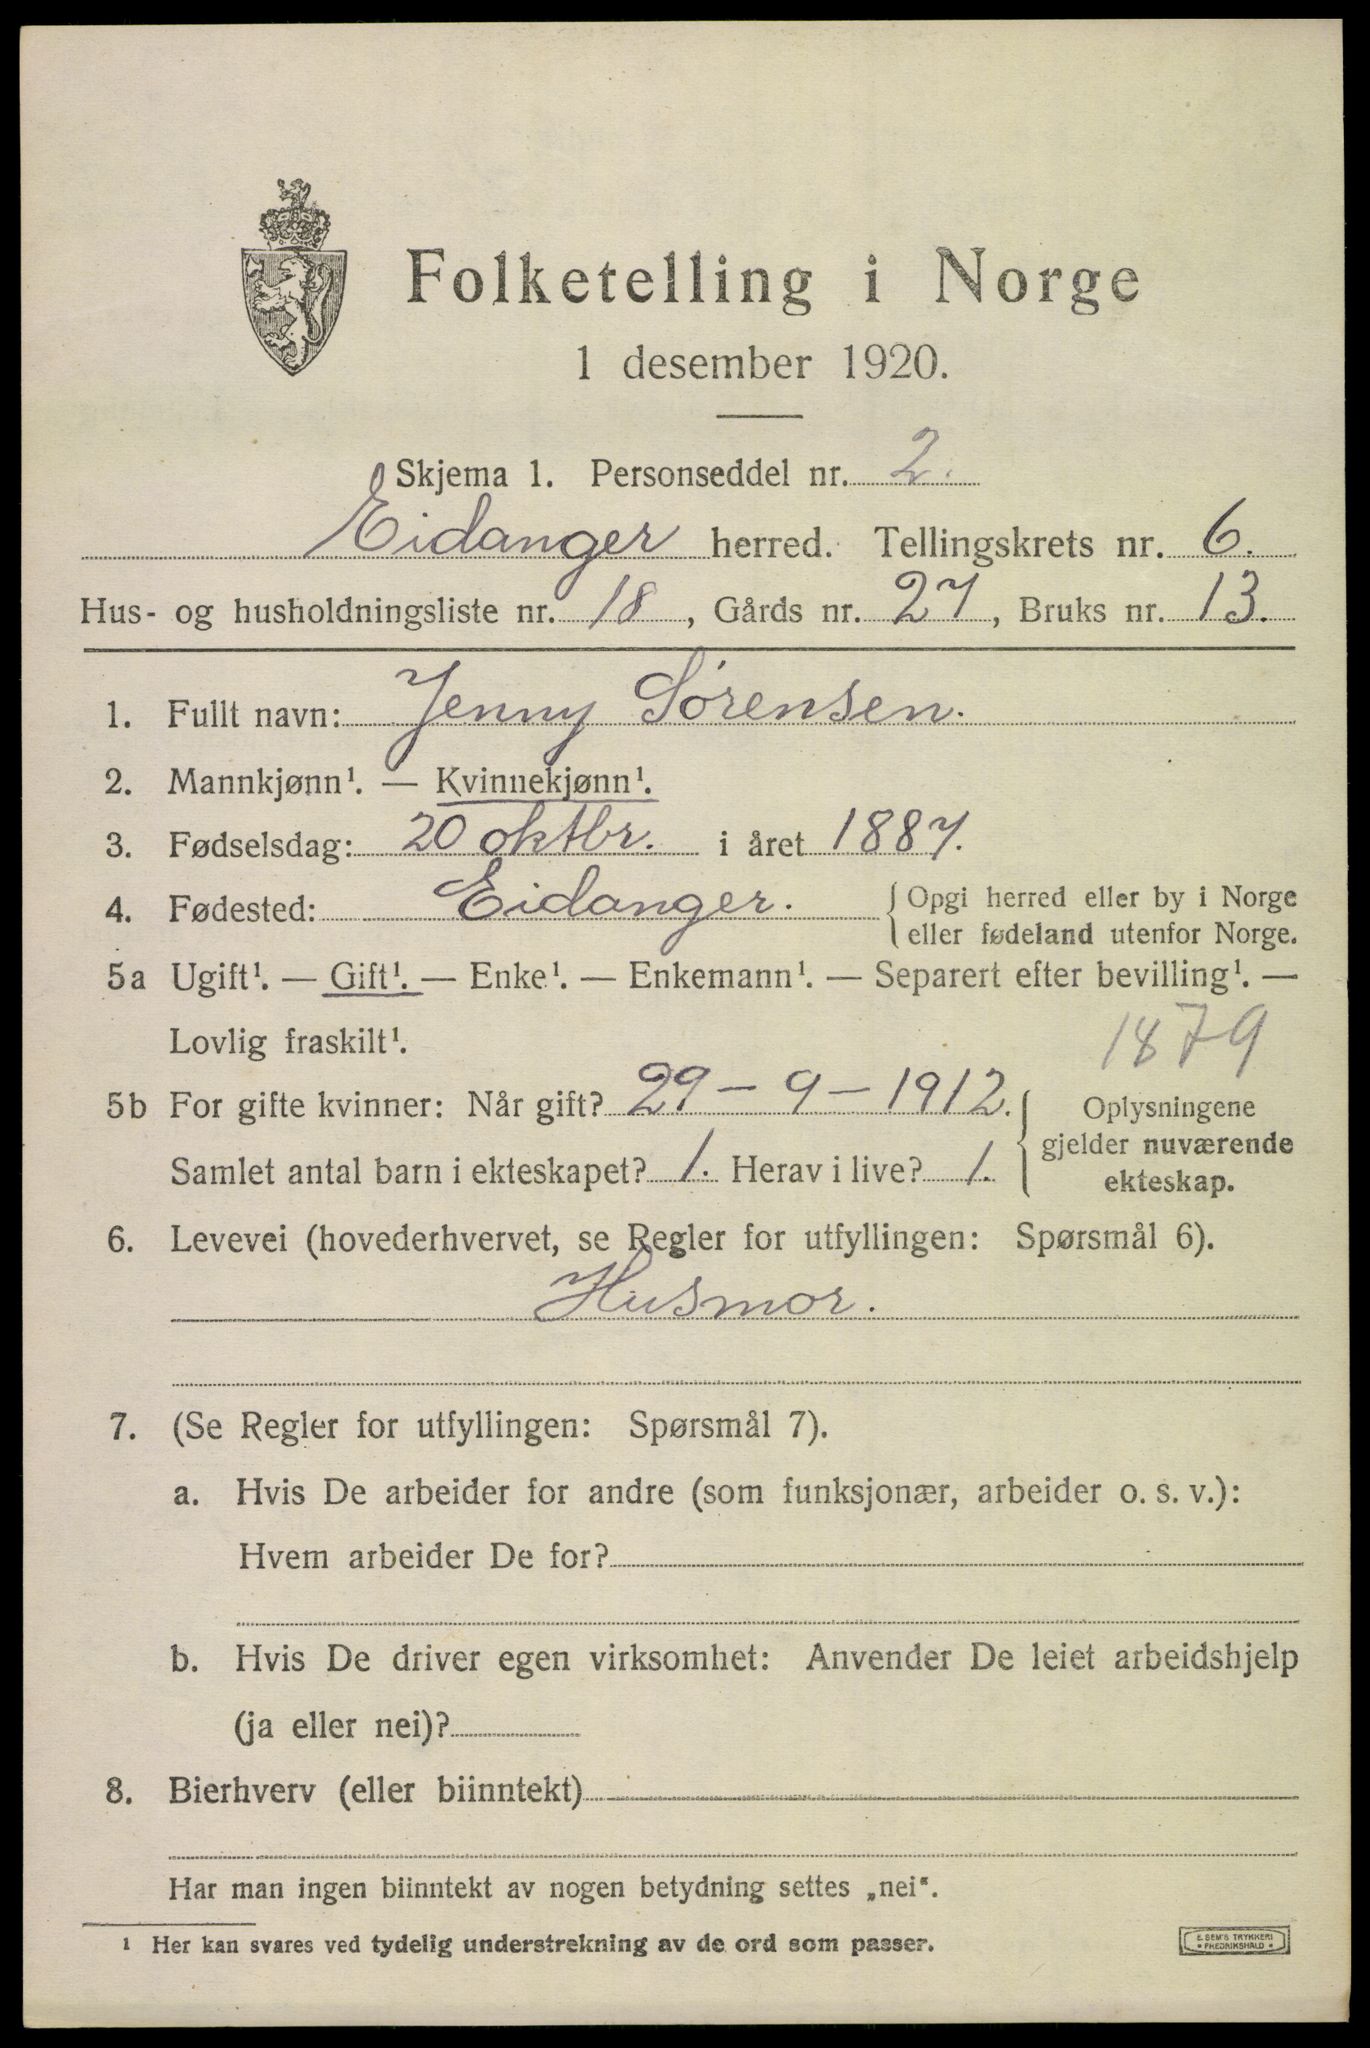 Folketelling i Norge
1 desember 1920.
Skjema 1. Personseddel nr. 2.
Eidanger herred. Tellingskrets nr. 6.
Hus- og husholdningsliste nr. 18, Gårds nr. 27, Bruks nr. 13.
1. Fullt navn: Jenny Sørensen.
2. Mannkjønn¹. — Kvinnekjønn¹.
3. Fødselsdag: 20 oktbr. i året 1887.
4. Fødested: Eidanger. { Opgi herred eller by i Norge
eller fødeland utenfor Norge.
5a Ugift¹. — Gift¹. — Enke¹. — Enkemann¹. — Separert efter bevilling¹. —
Lovlig fraskilt¹.
1879
5b For gifte kvinner: Når gift? 29 – 9 – 1912. { Oplysningene
gjelder nuværende
Samlet antal barn i ekteskapet? 1. Herav i live? 1.
ekteskap.
6. Levevei (hovederhvervet, se Regler for utfyllingen: Spørsmål 6).
Husmor.
7. (Se Regler for utfyllingen: Spørsmål 7).
a. Hvis De arbeider for andre (som funksjonær, arbeider o. s. v.):
Hvem arbeider De for?
b. Hvis De driver egen virksomhet: Anvender De leiet arbeidshjelp
(ja eller nei)?
8. Bierhverv (eller biinntekt)
Har man ingen biinntekt av nogen betydning settes „nei“.
¹ Her kan svares ved tydelig understrekning av de ord som passer.
E. SEM'S TRYKKERI
• FREDRIKSHALD •